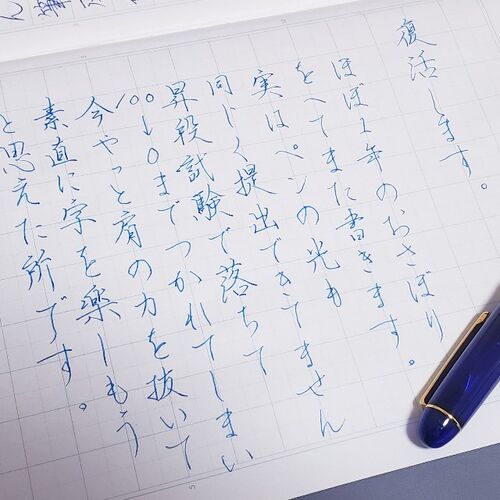 復活します。
ほぼ1年のおさぼり。
をへてまた書きます。
実はペンの光も
同じく提出できてません
昇段試験で落ちて
100→0までつかれてしまい
今やっと肩の力を抜いて
素直に字を楽しもう
と思えた所です。